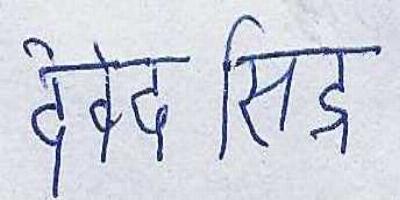 देवेद सिह